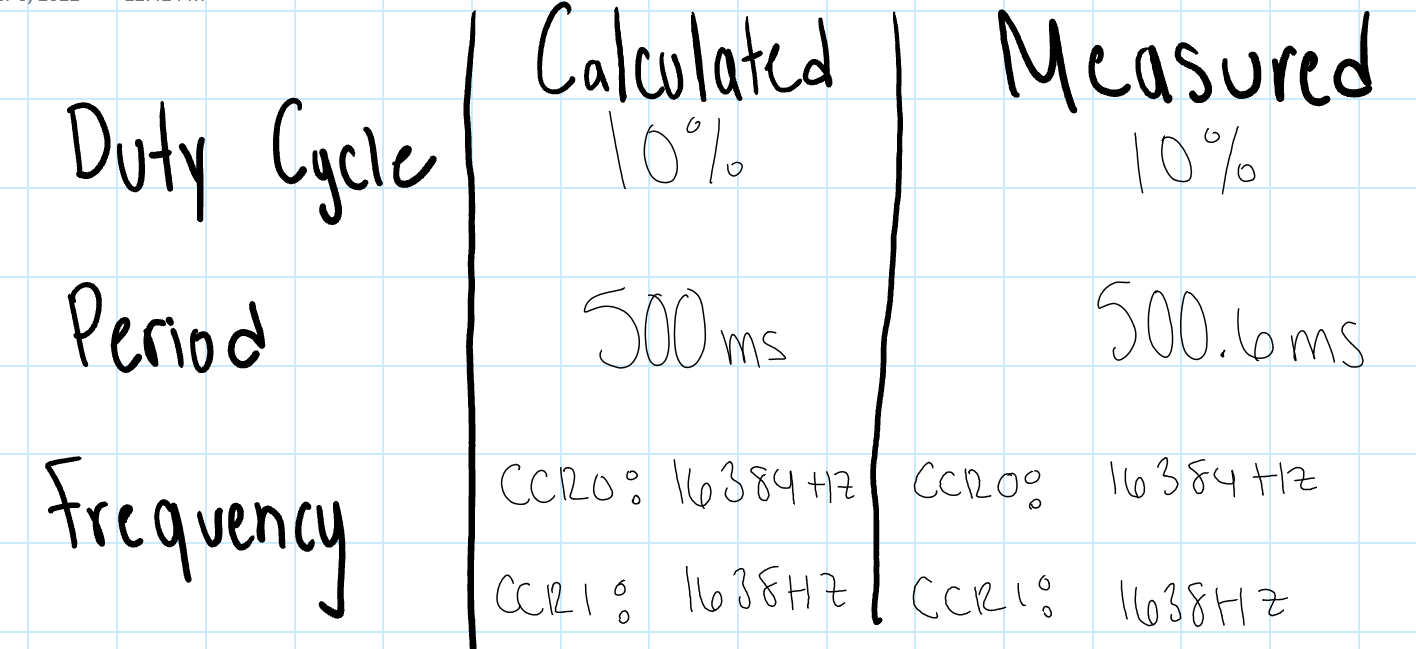 Calculated Measured
Duty Cycle 10% 10%
Period 500 ms 500.6 ms
Frequency CCR0: 16384 Hz CCR0: 16384 Hz
CCR1: 1638 Hz CCR1: 1638 Hz